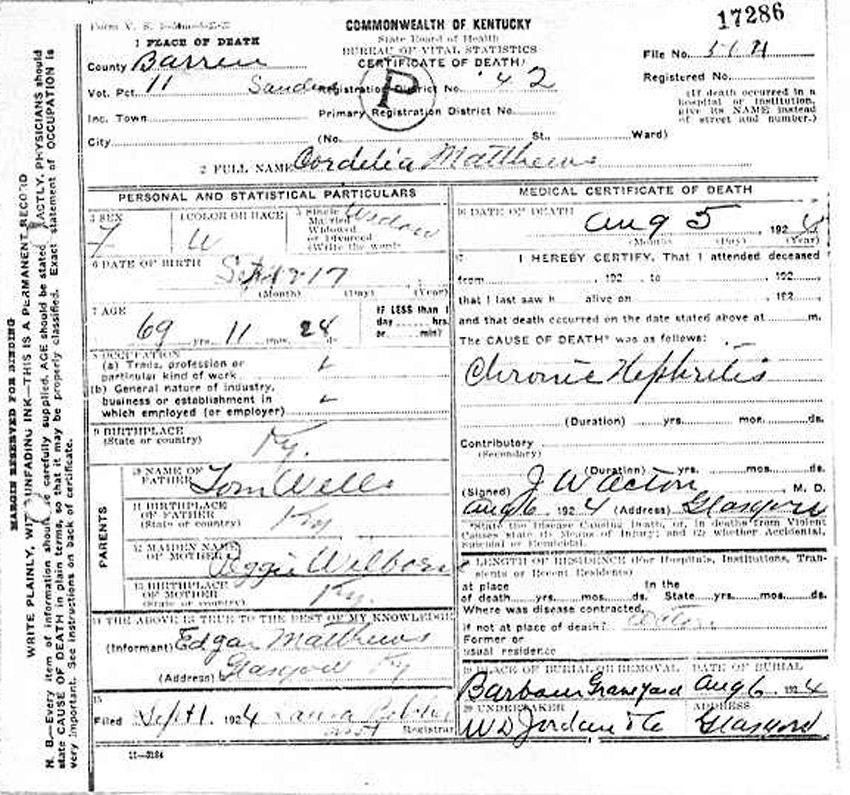 17286
Form V. S.
COMMONWEALTH OF KENTUCKY
State Board of Health
BUREAU OF VITAL STATISTICS
CERTIFICATE OF DEATH
File No.
Registered No.
(If death occurred in a hospital or institution, give its NAME instead of street and number.)
1 PLACE OF DEATH
County Barren
Vot. Pct. 11 Registration District No. 42
P
Inc. Town Primary Registration District No.
City (No. St., Ward)
2 FULL NAME Cordelia Matthews
PERSONAL AND STATISTICAL PARTICULARS
3 SEX
F
4 COLOR OR RACE
W
5 Single
Married
Widowed
or Divorced
(Write the word)
Widow
6 DATE OF BIRTH
Sept 17
(Month) (Day) (Year)
7 AGE
69 yrs. 11 mos. 28 ds.
IF LESS than 1
day hrs.
or min?
8 OCCUPATION
(a) Trade, profession or
particular kind of work
(b) General nature of industry,
business or establishment in
which employed (or employer)
9 BIRTHPLACE
(State or country)
Ky.
PARENTS
10 NAME OF
FATHER Tom Wells
11 BIRTHPLACE
OF FATHER
(State or country) Ky
12 MAIDEN NAME
OF MOTHER Peggie Wilborn
13 BIRTHPLACE
OF MOTHER
(State or country) Ky.
14 THE ABOVE IS TRUE TO THE BEST OF MY KNOWLEDGE
(Informant) Edgar Matthews
(Address) Glasgow Ky
15
Filed Sept 1, 1924 Laura
Registrar
11-3184
MEDICAL CERTIFICATE OF DEATH
16 DATE OF DEATH
Aug 5 1924
(Month) (Day) (Year)
17 I HEREBY CERTIFY, That I attended deceased
from , 192 , to , 192
that I last saw h alive on , 192
and that death occurred on the date stated above at m.
The CAUSE OF DEATH* was as follows:
Chronic Nephritis
(Duration) yrs. mos. ds.
Contributory
(Secondary)
(Duration) yrs. mos. ds.
(Signed) J W Acton, M. D.
Aug 6 1924 (Address) Glasgow
*State the Disease Causing Death, or, in deaths from Violent
Causes state (1) Means of Injury; and (2) whether Accidental,
Suicidal or Homicidal.
18 LENGTH OF RESIDENCE (For Hospitals, Institutions, Tran-
sients or Recent Residents)
At place In the
of death yrs. mos. ds. State yrs. mos. ds.
Where was disease contracted,
if not at place of death?
Former or
usual residence
19 PLACE OF BURIAL OR REMOVAL DATE OF BURIAL
Barbour Graveyard Aug 6, 1924
20 UNDERTAKER ADDRESS
W D Jordan & Co Glasgow
MARGIN RESERVED FOR BINDING
WRITE PLAINLY, WITH UNFADING INK—THIS IS A PERMANENT RECORD
N. B.—Every item of information should be carefully supplied. AGE should be stated EXACTLY. PHYSICIANS should
state CAUSE OF DEATH in plain terms, so that it may be properly classified. Exact statement of OCCUPATION is
very important. See instructions on back of certificate.